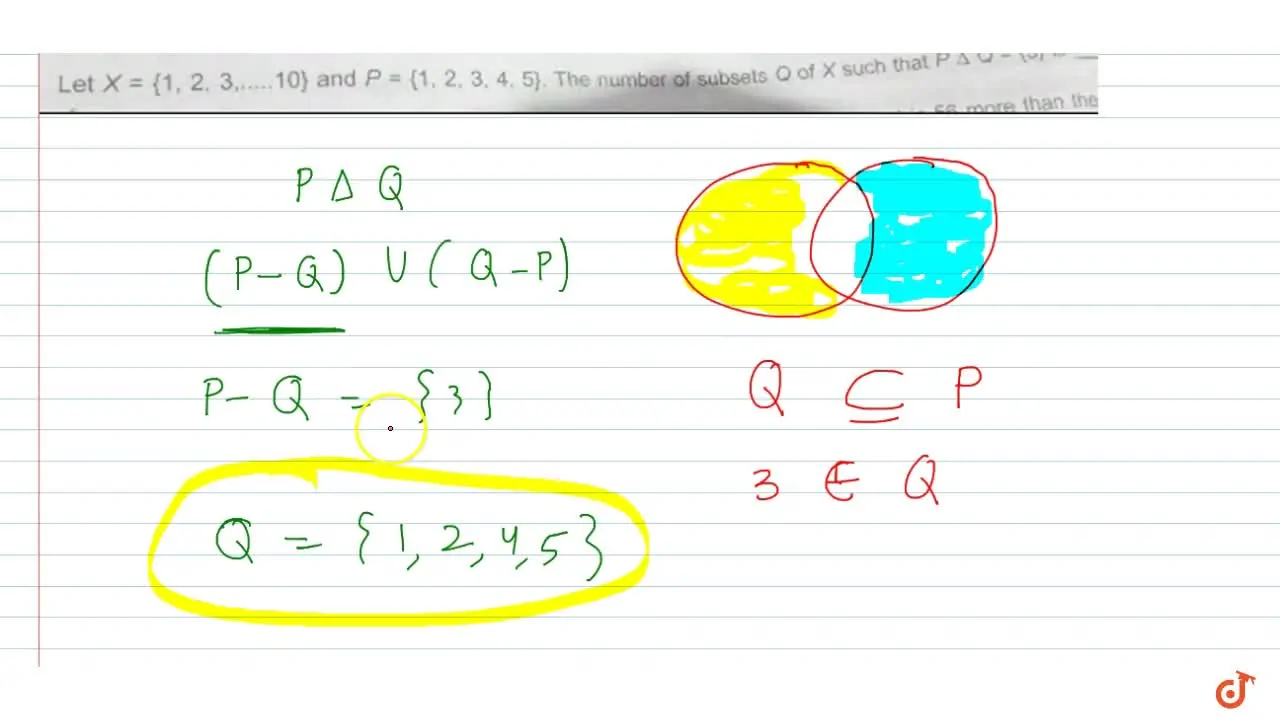 Let X = {1, 2, 3,.....10} and P = {1, 2, 3, 4, 5}. The number of subsets Q of X such that P Δ Q = {3} is
56 more than the
P Δ Q
(P - Q) U (Q - P)
P - Q = {3}
Q ⊆ P
3 ∈ Q
Q = {1, 2, 4, 5}